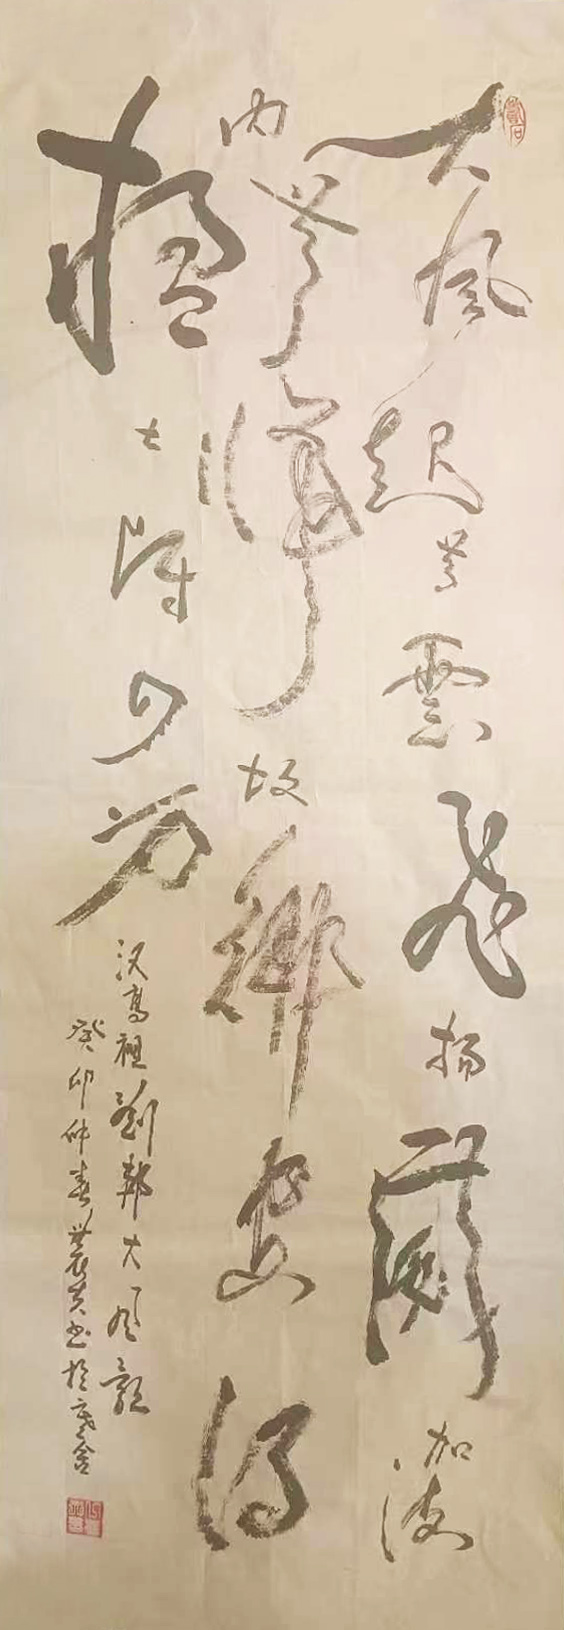 大風起兮雲飛揚威加海
内兮歸故鄉安得
猛士守四方
汉高祖劉邦大风歌
癸卯仲春農书於舍